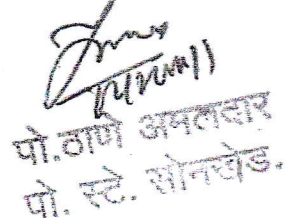 पो.ठाणे अमलदार
पो. स्टे. सोनखेड.